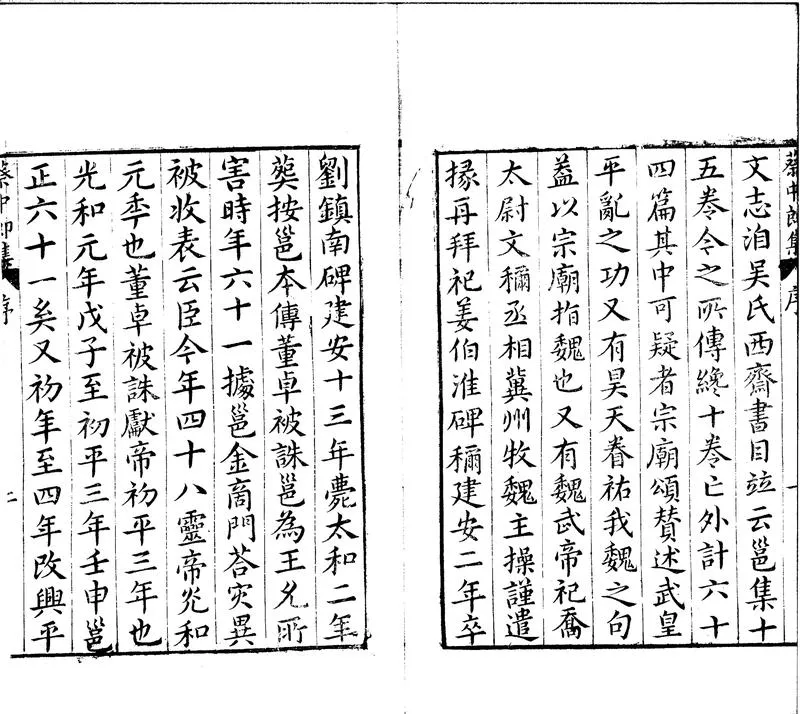 蔡中郎集
序
文志洎吴氏西齋書目竝云邕集十
五卷今之所傳纔十卷亡外計六十
四篇其中可疑者宗廟頌賛述武皇
平亂之功又有昊天眷祐我魏之句
葢以宗廟指魏也又有魏武帝祀喬
太尉文稱丞相冀州牧魏主操謹遣
掾再拜祀姜伯淮碑稱建安二年卒
劉鎮南碑建安十三年薨太和二年
葬按邕本傳董卓被誅邕為王允所
害時年六十一據邕金商門荅灾異
被收表云臣今年四十八靈帝光和
元年也董卓被誅獻帝初平三年也
光和元年戊子至初平三年壬申邕
正六十一矣又初年至四年改興平
蔡中郎集
序
二